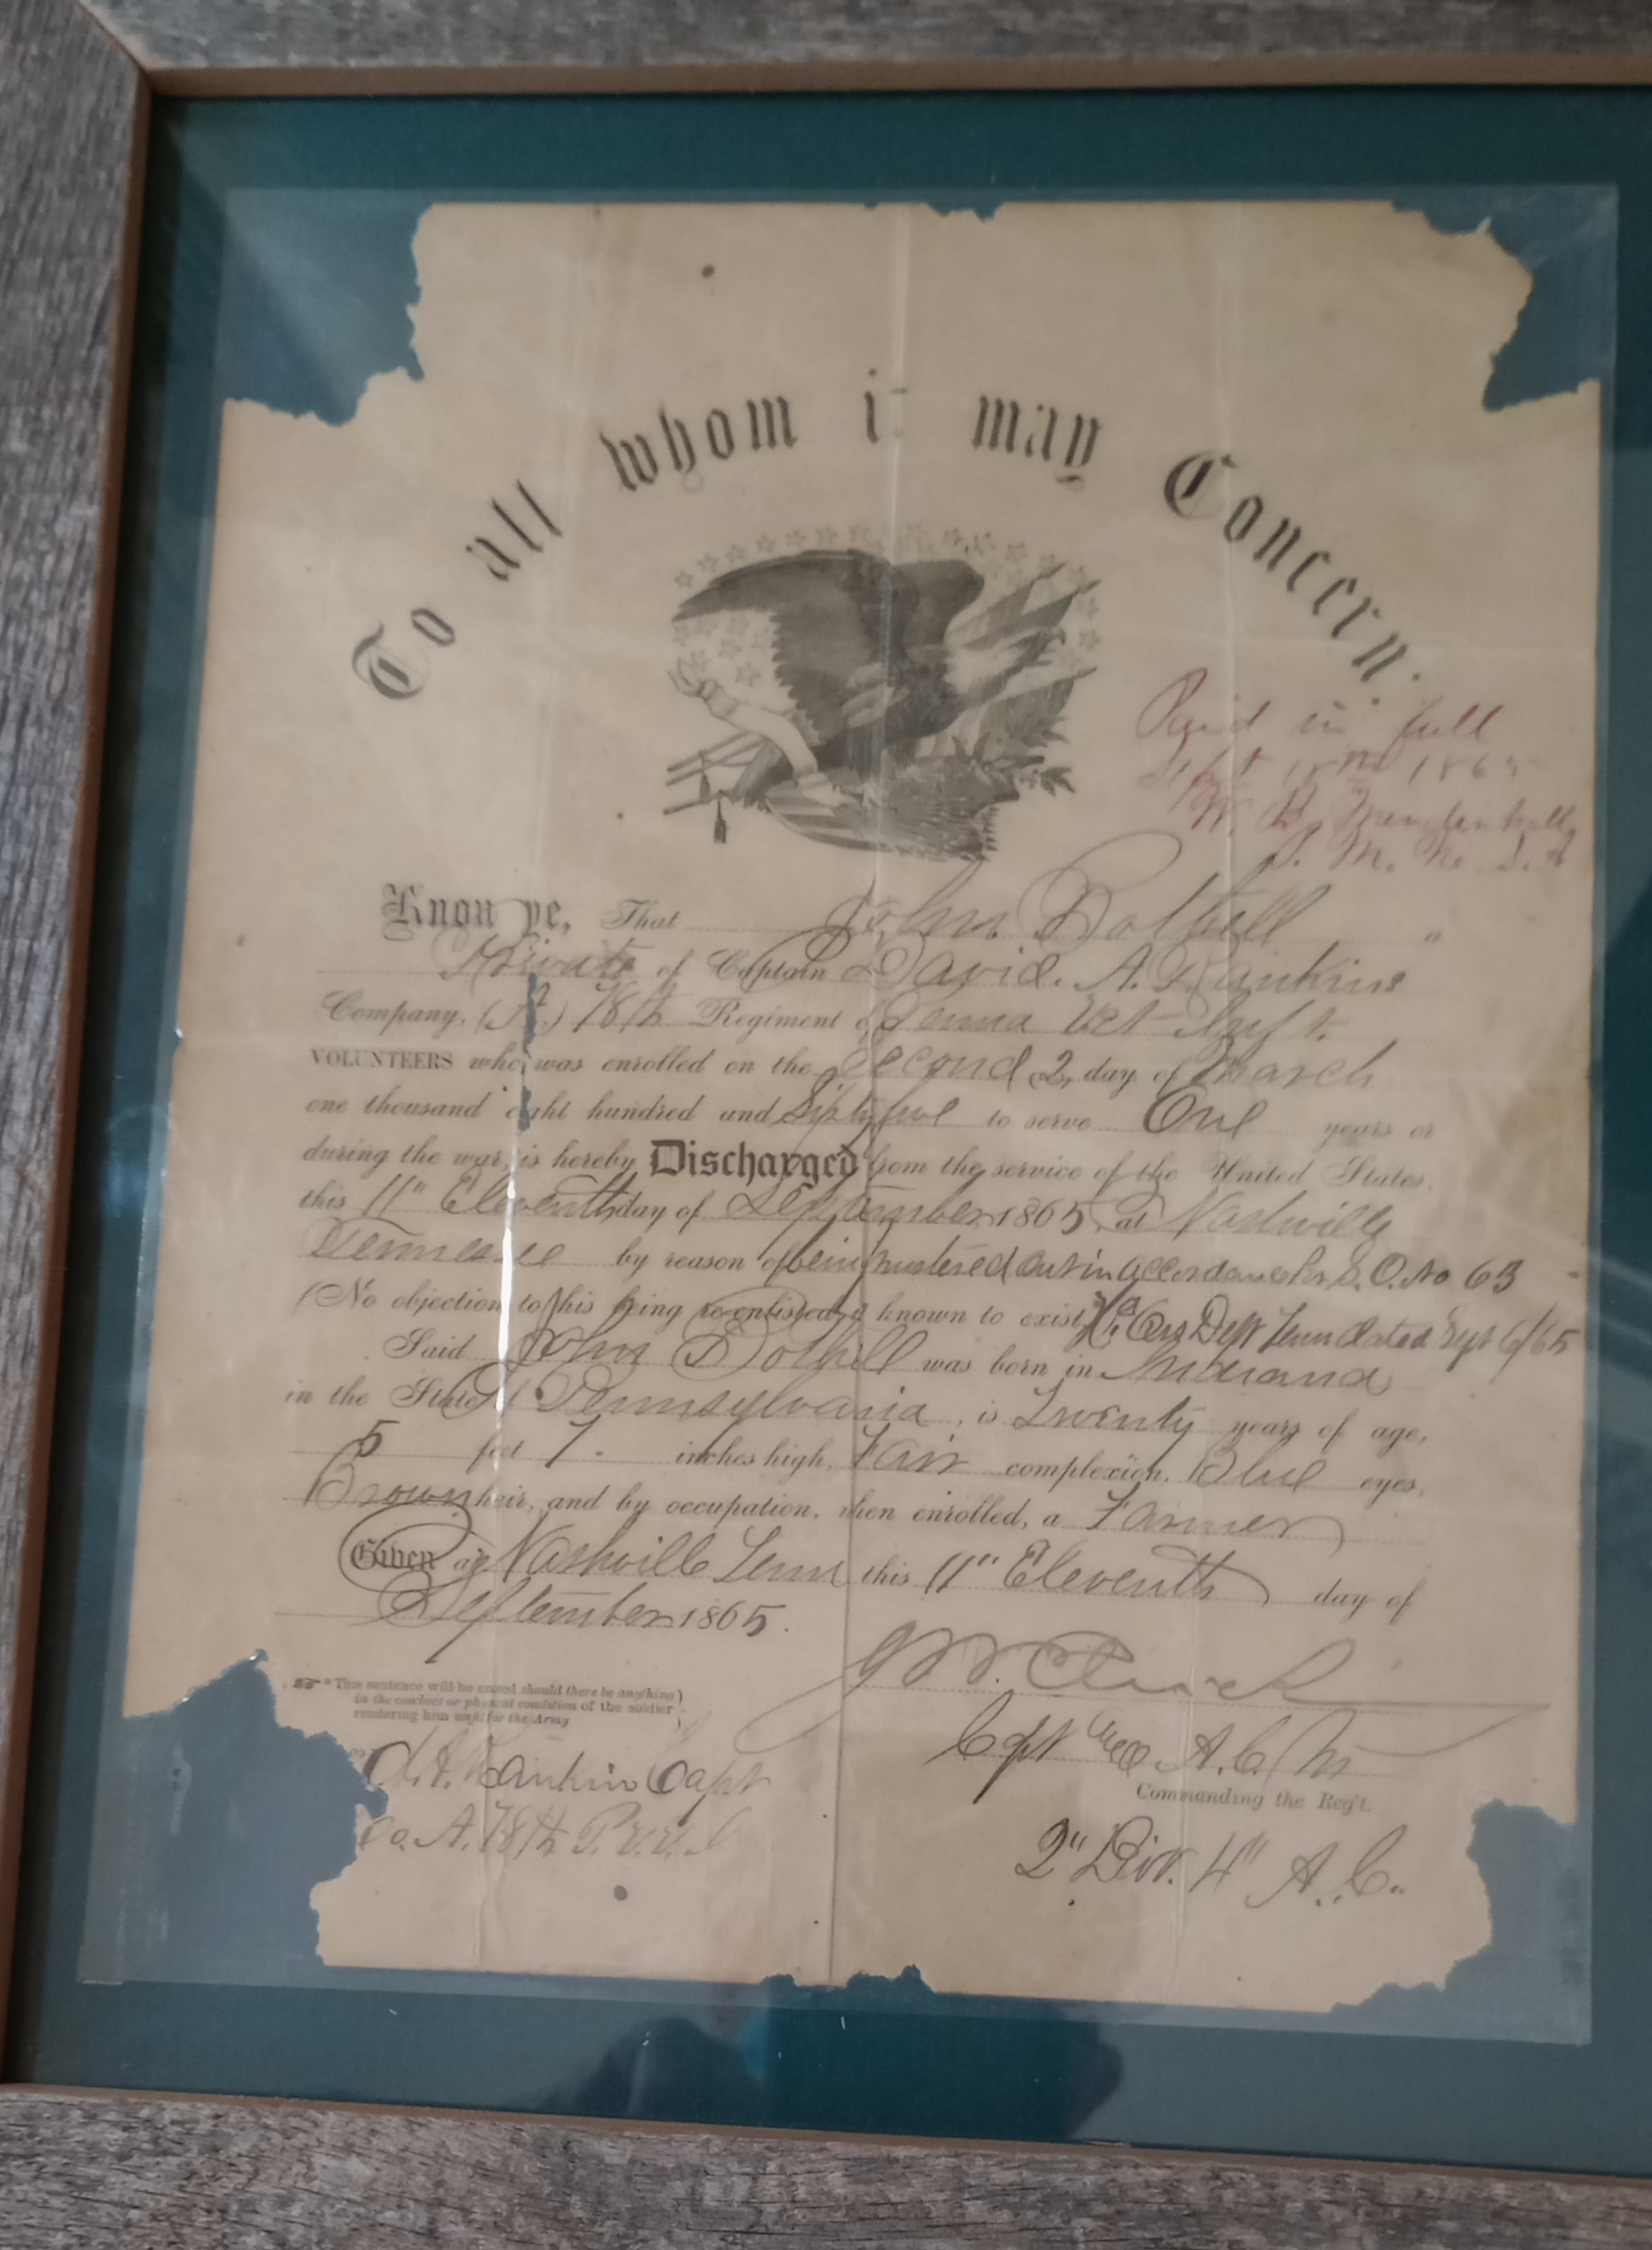 To all whom it may Concern.
Paid in full
Sept 1865
W. B. Mendenhall
P. M. U. S. A
Know ye, That John Bothell "
Private of Captain David. A. Rankins
Company, (A.) 78th Regiment of Penna Vet Inft.
VOLUNTEERS who was enrolled on the Second 2, day of March
one thousand eight hundred and Sixty five to serve One years or
during the war, is hereby Discharged from the service of the United States,
this 11" Eleventh day of September 1865, at Nashville
Tennessee by reason of being mustered out in accordance S. O. No 63
(No objection to his being re-enlisted is known to exist Hd Qrs Dept Tenn dated Sept 6/65
Said John Bothell was born in Indiana
in the State of Pennsylvania, is Twenty years of age,
5 feet 7 inches high, Fair complexion, Blue eyes,
Brown hair, and by occupation, when enrolled, a Farmer
Given at Nashville Tenn this 11" Eleventh day of
September 1865.
*This sentence will be erased should there be anything
in the conduct or physical condition of the soldier
rendering him unfit for the Army
D. A. Rankin Capt
Co. A. 78th P. V. V. I
Capt A. C. M
Commanding the Reg't.
2" Div. 4" A. C.